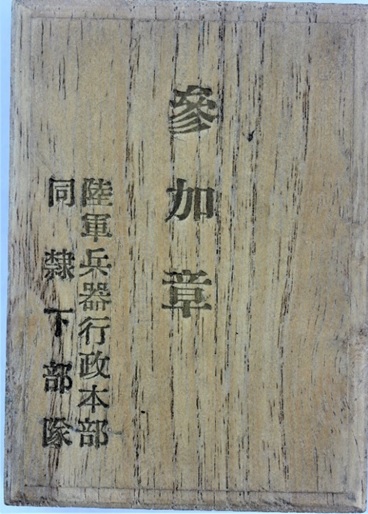 參加章
陸軍兵器行政本部
同隸下部隊